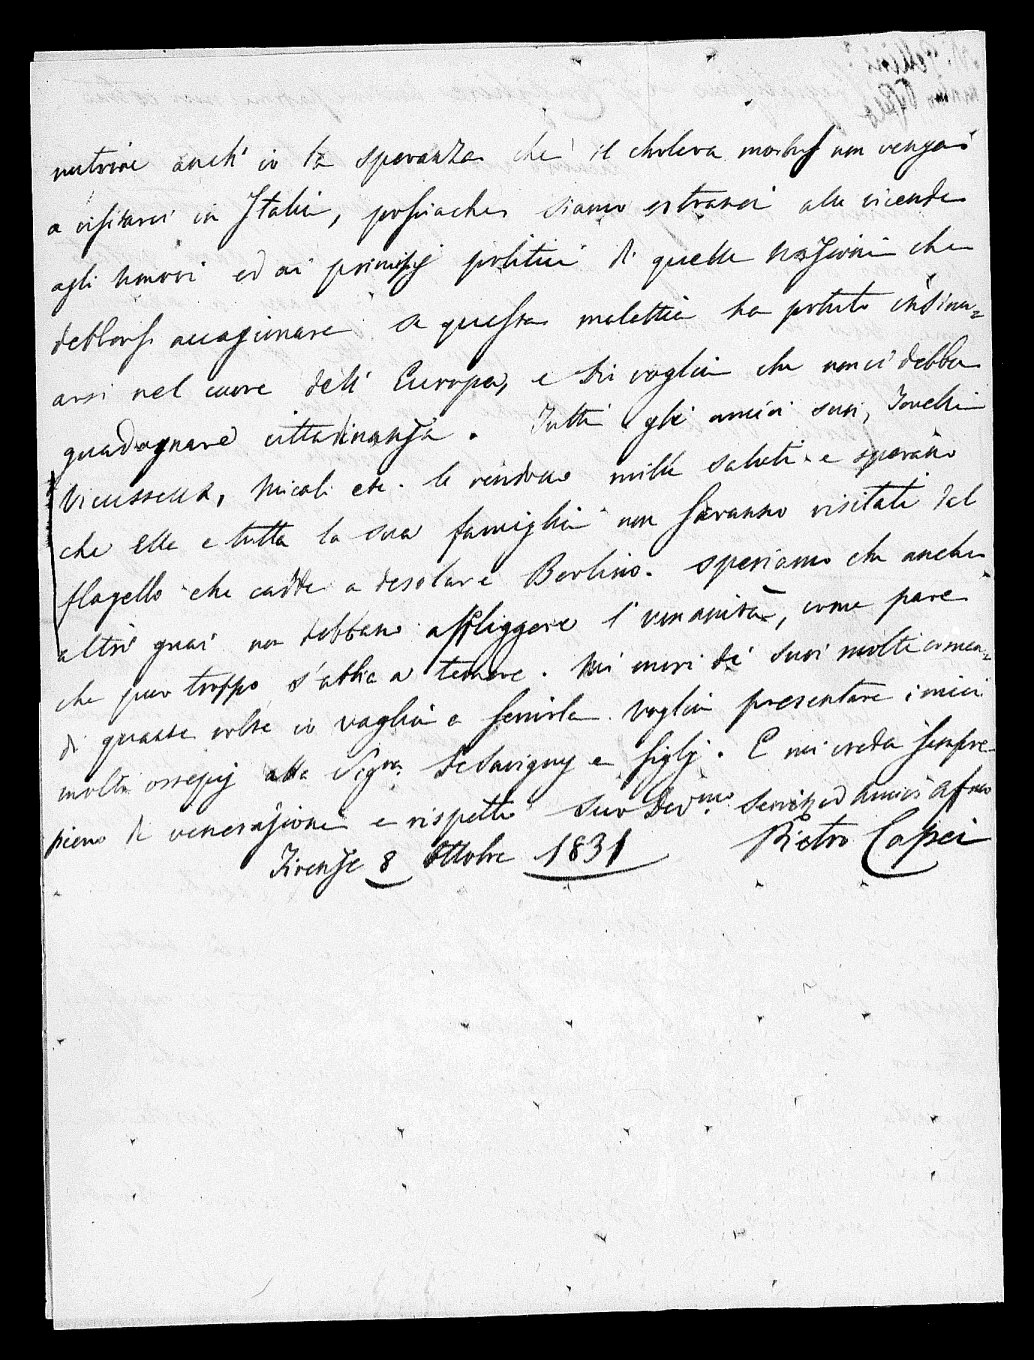 nutrire anch' io la speranza che il cholera morbus non venga
a visitarci in Italia, possiache siamo estranei alle vicende
agli umori ed ai principj politici di quelle nazioni che
debbonsi accagionare se questa malattia ha potuto insinu=
arsi nel cuore dell' Europa, e Dio voglia che non ci debba
guadagnare cittadinanza. Tutti gli amici suoi,
Vieusseux, Micali etc. le rendono mille saluti e sperano
che ella e tutta la sua famiglia non saranno visitati dal
flagello che cadde a desolare Berlino. Speriamo che anche
altri guai non debbano affliggere l'umanità, come pare
che pur troppo s'abbia a temere. Mi onori de' suoi molti coman=
di quante volte io vaglia a servirla. Voglia presentare i miei
molti ossequj alla Sig.ra De Savigny e figlj. E mi creda sempre
pieno di venerazione e rispetto Suo Dev.mo Serv. ed Amico Aff.mo
Firenze 8 Ottobre 1831 Pietro Capei